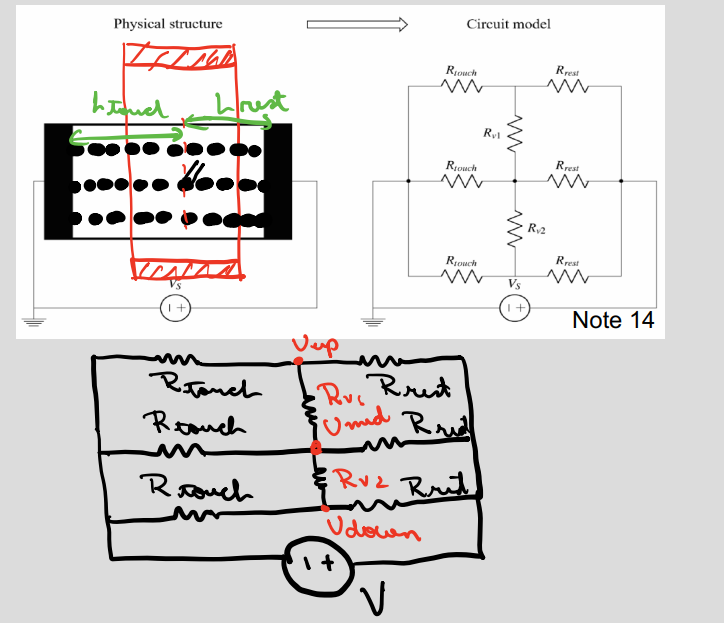 Physical structure
Circuit model
L touch
L rest
Rtouch
Rrest
Rv1
Rtouch
Rrest
Rv2
Rtouch
Rrest
VS
− +
VS
− +
Note 14
Uup
Rtouch
Rv1
Rrest
Rtouch
Umid
Rrest
Rtouch
Rv2
Rrest
Udown
− +
V